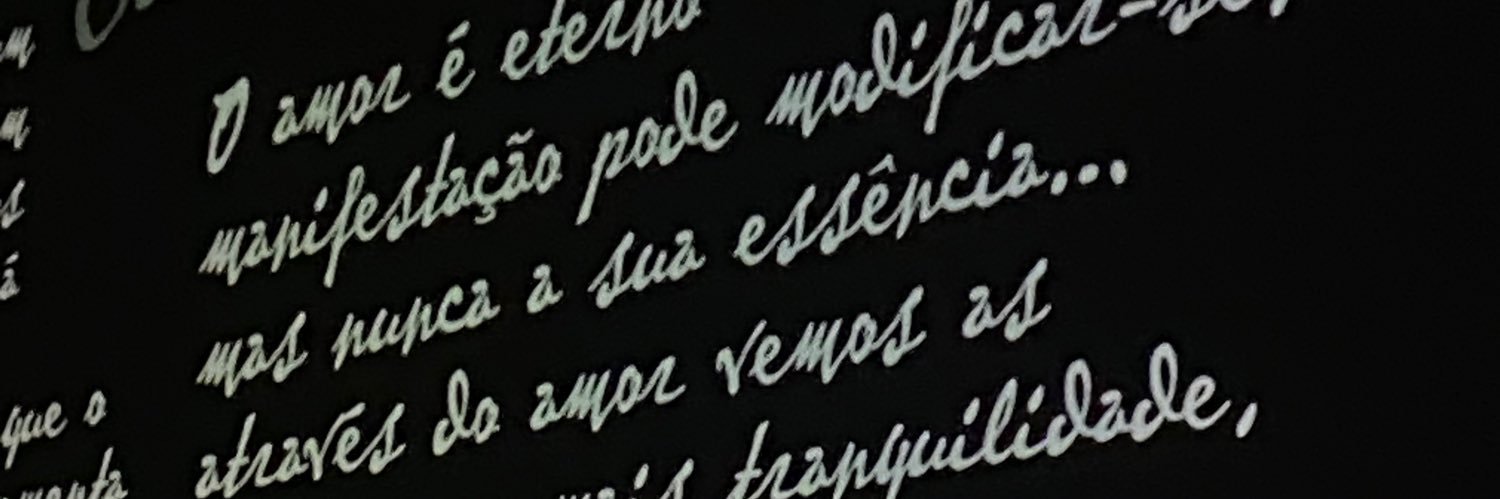 O amor é eterno
manifestação pode modificar-se,
mas nunca a sua essência...
através do amor vemos as
mais tranquilidade,
que o